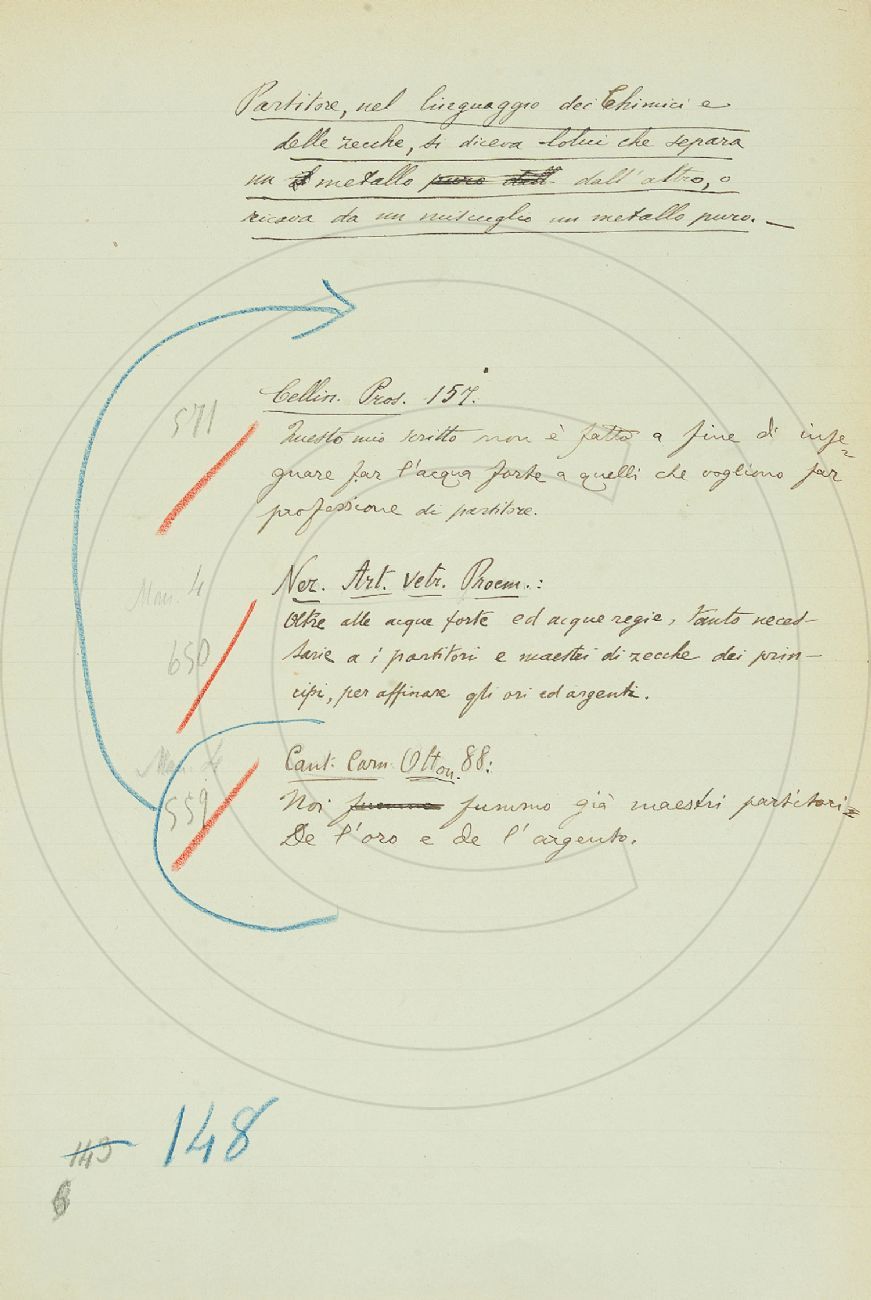 Partitore, nel linguaggio dei Chimici e
delle zecche, si diceva Colui che separa
un metallo puro dall' dall'altro, o
ricava da un miscuglio un metallo puro. —
Cellin. Pros. 157.
571
Questo mio scritto non è fatto a fine di inse=
gnare far l'acqua forte a quelli che vogliono far
professione di partitore.
Ner. Art. Vetr. Proem.:
Man. 4
Oltre alle acque forte ed acque regie, tanto neces-
650
sarie a i partitori e maestri di zecche dei prin-
cipi, per affinare gli ori ed argenti.
Man. 4
Cant. Carn. Otton. 88:
559
Noi fummo fummo già maestri partitori
De l'oro e de l'argento.
148
149
6